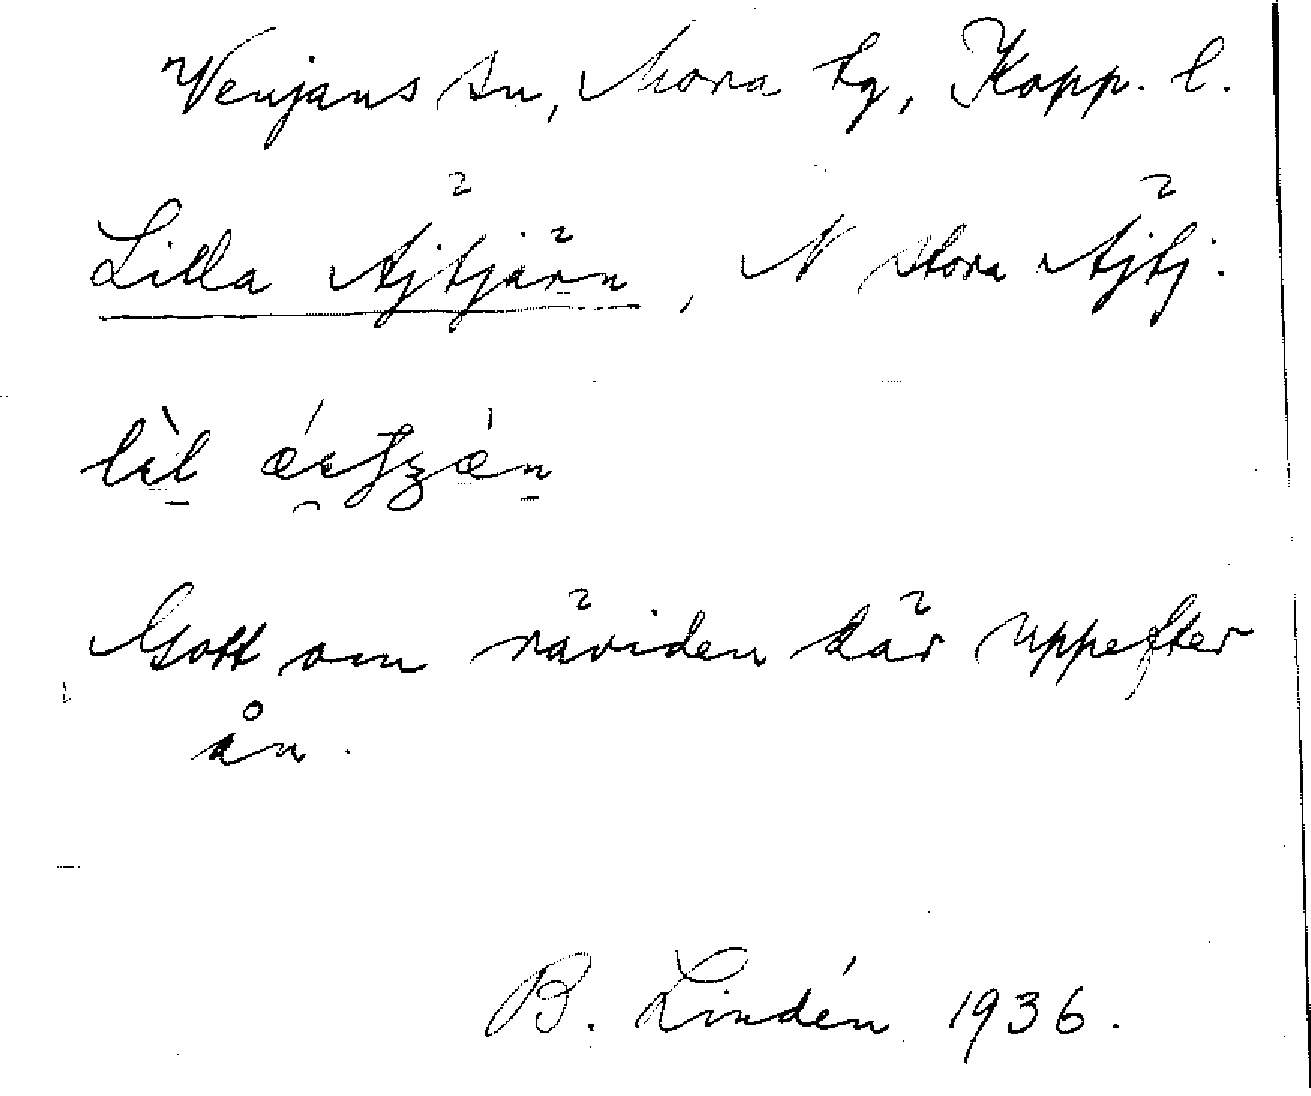 Venjans sn, Mora tg, Kopp. l.
Lilla Äjtjärn, N Stora Äjtj.
lìl
Gott om råviden där uppefter
ån.
B. Lindén 1936.